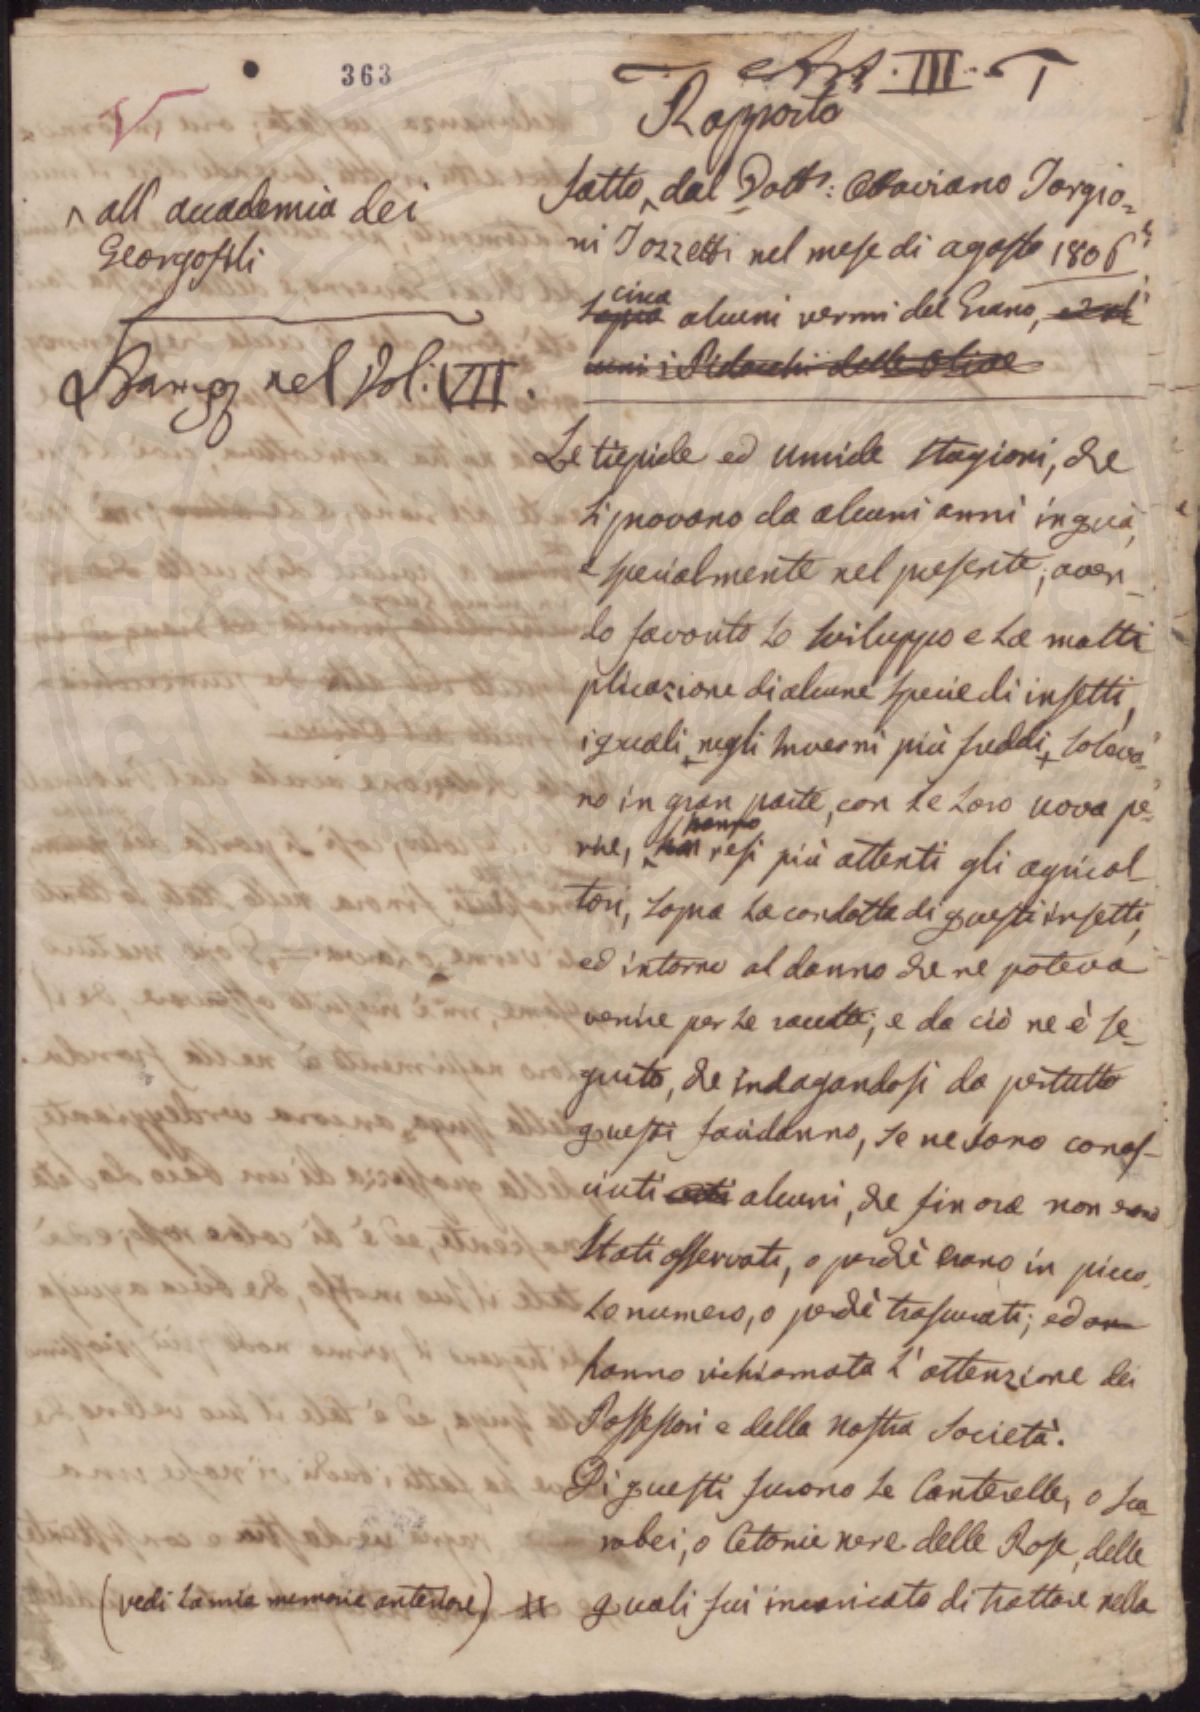 363
Art. III.
V.
Rapporto
fatto ^ dal Dott.: Ottaviano Targio=
^ all' accademia dei
Georgofili
ni Tozzetti nel mese di agosto 1806
circa
sopra alcuni vermi del Grano, ed al
cuni i Pidocchi delle Olive
Stamp nel Vol: VII.
Le tiepide ed umide stagioni, che
si provano da alcuni anni in quà,
e specialmente nel presente, aven
do favorito lo sviluppo e la molti
plicazione di alcune specie di insetti,
i quali + negli Inverni più freddi + soleva=
no in gran parte, con le loro uova pe=
hanno
rire, ^ han resi più attenti gli agricol
tori, sopra la condotta di questi insetti,
ed intorno al danno che ne poteva
venire per le raccolte; e da ciò ne è se=
guito, che indagandosi da pertutto
questi facidanno, se ne sono conos=
ciuti alcuni, che fin ora non erano
stati osservati, o perchè erano in picco=
lo numero, o perchè trascurati; ed
hanno richiamata l'attenzione dei
Possessori e della nostra Società.
Di questi furono le Canterelle, o Sca=
rabei, o Cetonie nere delle Rose, delle
(vedi la mia memoria anteriore) # quali fui incaricato di trattare nella